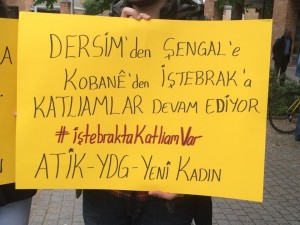 DERSİM'den ŞENGAL'e
KOBANÊ'den İŞTEBRAK'a
KATLIAMLAR DEVAM EDİYOR
#iştebraktaKatliamVar
ATİK-YDG-YENİ KADIN